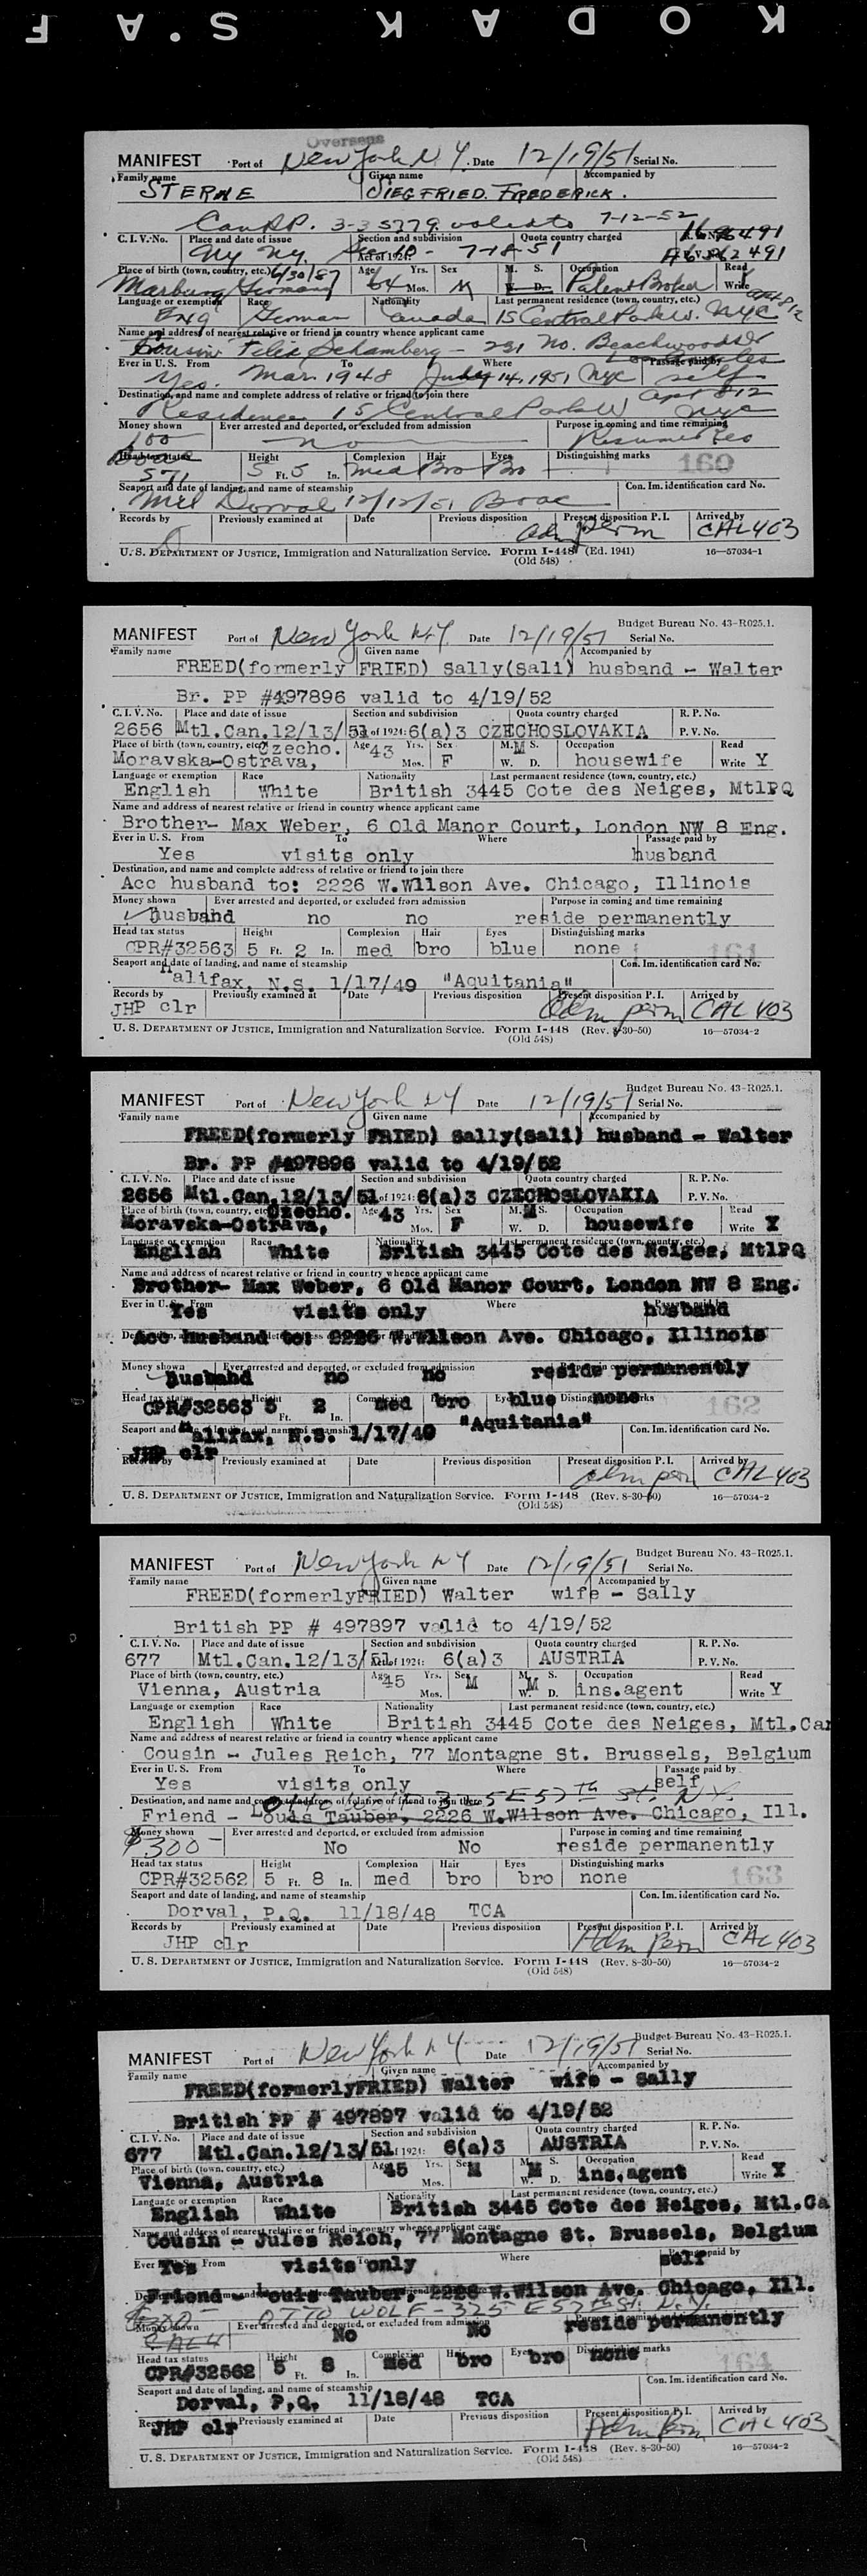 KODAK S.A F
Overseas
MANIFEST Port of New York N.Y. Date 12/19/51 Serial No.
Family name Given name Accompanied by
STERNE SIEGFRIED. FREDERICK.
Can PP. 3-35779 valid to 7-12-52
C. I. V. No. Place and date of issue Section and subdivision Quota country charged
NY NY. Act of 1924: 7-18-51
Place of birth (town, country, etc.) 6/30/87 Age Yrs. Sex M. S. Occupation Read
Marburg Germany 64 Mos. M W. D. Patent Broker Write
Language or exemption Race Nationality Last permanent residence (town, country, etc.)
Eng German Canada 15 Central Park W. NYC apt 812
Name and address of nearest relative or friend in country whence applicant came
Cousin Felix Schamberg - 231 No. Beachwood
Ever in U. S. From To Where Passage paid by
Yes. Mar. 1948 14, 1951 NYC self
Destination, and name and complete address of relative or friend to join there
Residence 15 Central Park W apt 812 NYC
Money shown Ever arrested and deported, or excluded from admission Purpose in coming and time remaining
100 no Resume Res
Head tax status Height Complexion Hair Eyes Distinguishing marks
571 5 Ft. 5 In. Med Bro Bro 160
Seaport and date of landing, and name of steamship Con. Im. identification card No.
Dorval 12/12/51 Boac
Records by Previously examined at Date Previous disposition Present disposition P. I. Arrived by
adm perm CAL 403
U. S. DEPARTMENT OF JUSTICE, Immigration and Naturalization Service. Form I-448 (Ed. 1941) 16—57034-1
(Old 548)
Budget Bureau No. 43-R025.1.
MANIFEST Port of New York N.Y. Date 12/19/51 Serial No.
Family name Given name Accompanied by
FREED(formerly FRIED) Sally(Sali) husband - Walter
Br. PP #497896 valid to 4/19/52
C. I. V. No. Place and date of issue Section and subdivision Quota country charged R. P. No.
2656 Mtl.Can.12/13/51 of 1924: 6(a)3 CZECHOSLOVAKIA P. V. No.
Place of birth (town, country, etc.) Czecho. Age 43 Yrs. Sex M. M S. Occupation Read
Moravska-Ostrava, Mos. F W. D. housewife Write Y
Language or exemption Race Nationality Last permanent residence (town, country, etc.)
English White British 3445 Cote des Neiges, MtlPQ
Name and address of nearest relative or friend in country whence applicant came
Brother- Max Weber, 6 Old Manor Court, London NW 8 Eng.
Ever in U. S. From To Where Passage paid by
Yes visits only husband
Destination, and name and complete address of relative or friend to join there
Acc husband to: 2226 W.Wilson Ave. Chicago, Illinois
Money shown Ever arrested and deported, or excluded from admission Purpose in coming and time remaining
Husband no no reside permanently
Head tax status Height Complexion Hair Eyes Distinguishing marks
CPR#32563 5 Ft. 2 In. med bro blue none 161
Seaport and date of landing, and name of steamship Con. Im. identification card No.
Halifax, N.S. 1/17/49 "Aquitania"
Records by Previously examined at Date Previous disposition Present disposition P. I. Arrived by
JHP clr Adm perm CAL 403
U. S. DEPARTMENT OF JUSTICE, Immigration and Naturalization Service. Form I-448 (Rev. 8-30-50) 16—57034-2
(Old 548)
Budget Bureau No. 43-R025.1.
MANIFEST Port of New York NY Date 12/19/51 Serial No.
Family name Given name Accompanied by
FREED(formerly FRIED) Sally(Sali) husband - Walter
Br. PP #497896 valid to 4/19/52
C. I. V. No. Place and date of issue Section and subdivision Quota country charged R. P. No.
2656 Mtl.Can.12/13/51 of 1924: 6(a)3 CZECHOSLOVAKIA P. V. No.
Place of birth (town, country, etc.) Czecho. Age 43 Yrs. Sex M. M S. Occupation Read
Moravska-Ostrava, Mos. F W. D. housewife Write Y
Language or exemption Race Nationality Last permanent residence (town, country, etc.)
English White British 3445 Cote des Neiges, MtlPQ
Name and address of nearest relative or friend in country whence applicant came
Brother- Max Weber, 6 Old Manor Court, London NW 8 Eng.
Ever in U. S. From Where Passage paid by
Yes visits only husband
Acc husband to: 2226 W.Wilson Ave. Chicago, Illinois
Money shown Ever arrested and deported, or excluded from admission
Husband no no reside permanently
Head tax status Height Complexion Hair Eyes Distinguishing marks
CPR#32563 5 Ft. 2 In. med bro blue none 162
Seaport and date of landing, and name of steamship Con. Im. identification card No.
Halifax, N.S. 1/17/49 "Aquitania"
JHP clr
Records by Previously examined at Date Previous disposition Present disposition P. I. Arrived by
Adm perm CAL 403
U. S. DEPARTMENT OF JUSTICE, Immigration and Naturalization Service. Form I-448 (Rev. 8-30-50) 16—57034-2
(Old 548)
Budget Bureau No. 43-R025.1.
MANIFEST Port of New York NY Date 12/19/51 Serial No.
Family name Given name Accompanied by
FREED(formerlyFRIED) Walter wife - Sally
British PP # 497897 valid to 4/19/52
C. I. V. No. Place and date of issue Section and subdivision Quota country charged R. P. No.
677 Mtl.Can.12/13/51 of 1924: 6(a)3 AUSTRIA P. V. No.
Place of birth (town, country, etc.) Age 45 Yrs. Sex M. S. Occupation Read
Vienna, Austria Mos. M W. M D. ins.agent Write Y
Language or exemption Race Nationality Last permanent residence (town, country, etc.)
English White British 3445 Cote des Neiges, Mtl.Can
Name and address of nearest relative or friend in country whence applicant came
Cousin - Jules Reich, 77 Montagne St. Brussels, Belgium
Ever in U. S. From To Where Passage paid by
Yes visits only self
Destination, and name and complete address of relative or friend to join there
Otto Wolf 325 E 57th St. N.Y.
Friend - Louis Tauber, 2226 W.Wilson Ave. Chicago, Ill.
Money shown Ever arrested and deported, or excluded from admission Purpose in coming and time remaining
$300- No No reside permanently
Head tax status Height Complexion Hair Eyes Distinguishing marks
CPR#32562 5 Ft. 8 In. med bro bro none 163
Seaport and date of landing, and name of steamship Con. Im. identification card No.
Dorval, P.Q. 11/18/48 TCA
Records by Previously examined at Date Previous disposition Present disposition P. I. Arrived by
JHP clr Adm Perm CAL 403
U. S. DEPARTMENT OF JUSTICE, Immigration and Naturalization Service. Form I-448 (Rev. 8-30-50) 16—57034-2
(Old 548)
Budget Bureau No. 43-R025.1.
MANIFEST Port of New York NY Date 12/19/51 Serial No.
Family name Given name Accompanied by
FREED(formerlyFRIED) Walter wife - Sally
British PP # 497897 valid to 4/19/52
C. I. V. No. Place and date of issue Section and subdivision Quota country charged R. P. No.
677 Mtl.Can.12/13/51 of 1924: 6(a)3 AUSTRIA P. V. No.
Place of birth (town, country, etc.) Age 45 Yrs. Sex M. S. Occupation Read
Vienna, Austria Mos. M W. M D. ins.agent Write Y
Language or exemption Race Nationality Last permanent residence (town, country, etc.)
English White British 3445 Cote des Neiges, Mtl.Ca
Name and address of nearest relative or friend in country whence applicant came
Cousin - Jules Reich, 77 Montagne St. Brussels, Belgium
Ever From To Where paid by
Yes visits only self
Friend - Louis Tauber, 2226 W.Wilson Ave. Chicago, Ill.
$300- OTTO WOLF - 325 E 57th St. N.Y.
Money shown Ever arrested and deported, or excluded from admission
No No reside permanently
Head tax status Height Complexion Hair Eyes Distinguishing marks
CPR#32562 5 Ft. 8 In. med bro bro none 164
Seaport and date of landing, and name of steamship Con. Im. identification card No.
Dorval, P.Q. 11/18/48 TCA
Records by Previously examined at Date Previous disposition Present disposition P. I. Arrived by
JHP clr Adm Perm CAL 403
U. S. DEPARTMENT OF JUSTICE, Immigration and Naturalization Service. Form I-448 (Rev. 8-30-50) 16—57034-2
(Old 548)